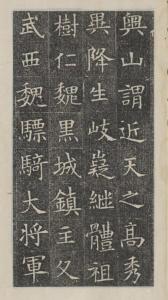 興山謂近天之高秀
異降生岐嶷継體祖
樹仁魏黒城鎮主父
武西魏驃騎大將軍